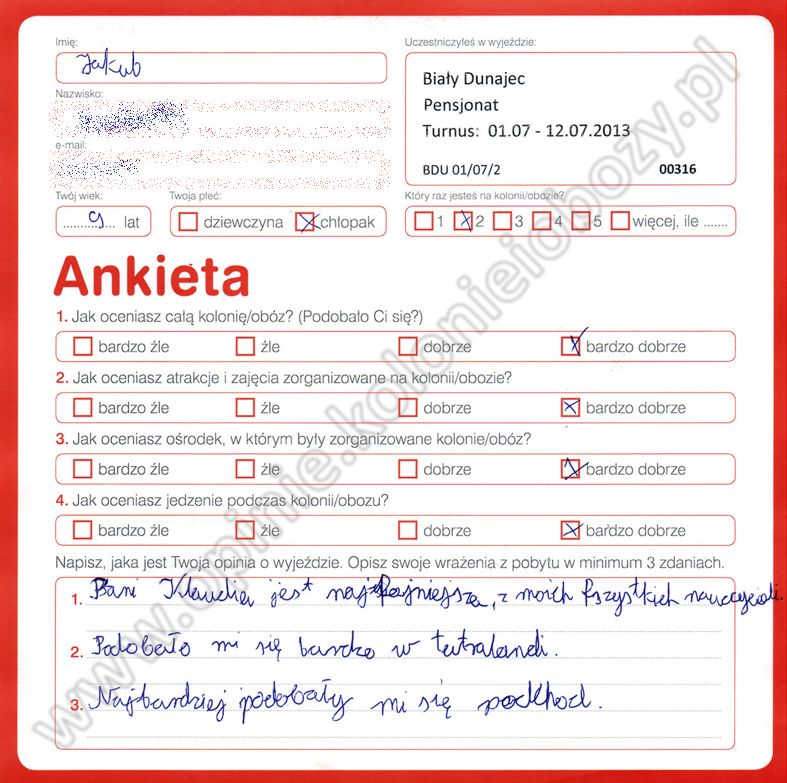 Imię:
Jakub
Uczestniczyłeś w wyjeździe:
Biały Dunajec
Pensjonat
Turnus: 01.07 - 12.07.2013
BDU 01/07/2 00316
Nazwisko:
e-mail:
Twój wiek:
9 lat
Twoja płeć:
dziewczyna chłopak
Który raz jesteś na kolonii/obozie?
1 2 3 4 5 więcej, ile .......
Ankieta
1. Jak oceniasz całą kolonię/obóz? (Podobało Ci się?)
bardzo źle źle dobrze bardzo dobrze
2. Jak oceniasz atrakcje i zajęcia zorganizowane na kolonii/obozie?
bardzo źle źle dobrze bardzo dobrze
3. Jak oceniasz ośrodek, w którym były zorganizowane kolonie/obóz?
bardzo źle źle dobrze bardzo dobrze
4. Jak oceniasz jedzenie podczas kolonii/obozu?
bardzo źle źle dobrze bardzo dobrze
Napisz, jaka jest Twoja opinia o wyjeździe. Opisz swoje wrażenia z pobytu w minimum 3 zdaniach.
1. Pani Klaudia jest najfajniejsza, z moich fszystkich nauczycieli.
2. Podobało mi się bardzo w tatralandi.
3. Najbardziej podobały mi się podchod.
www.opinie.kolonieiobozy.pl